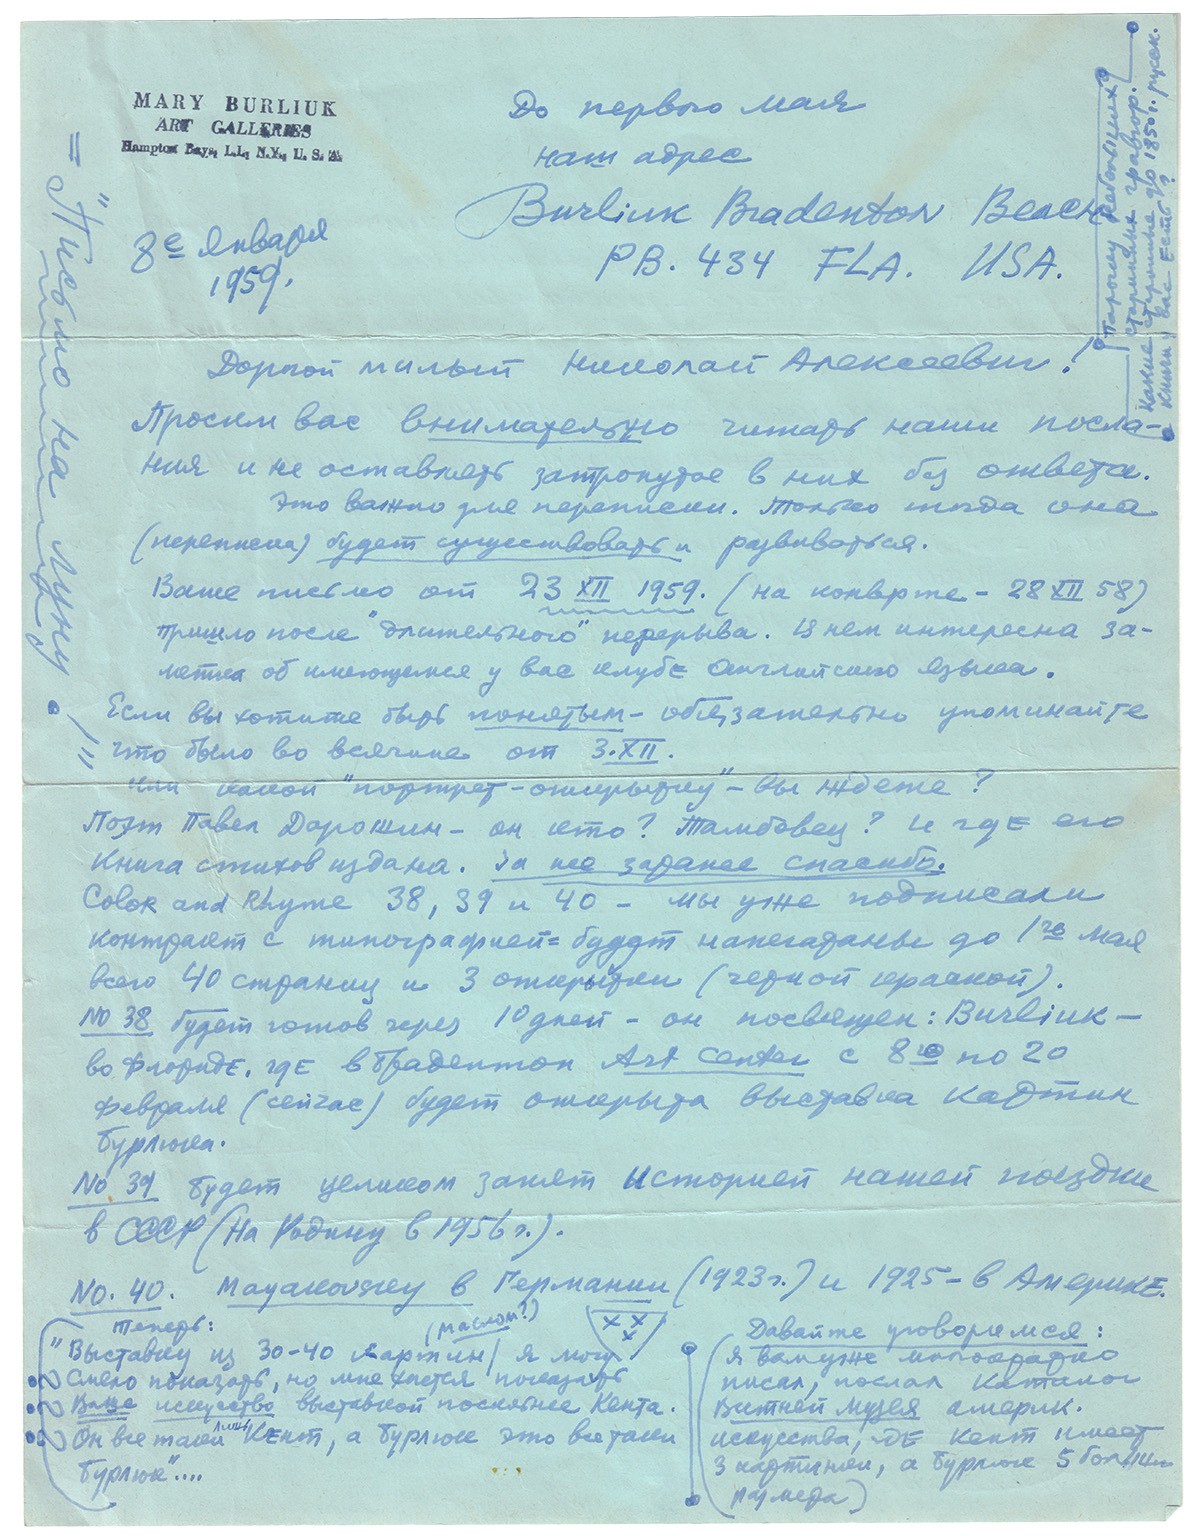 MARY BURLIUK
ART GALLERIES
Hampton Bays, L.I., N.Y., U. S. A.
8е января
1959.
До первого мая
наш адрес
Burliuk Bradenton Beach
PB. 434 FLA. USA.
старинных гравюр.
Какие старинные до 1850 г. русск.
книги у вас есть?
= "Письмо на луну!"=
Дорогой милый Николай Алексеевич!
Просим вас внимательно читать наши посла-
ния и не оставлять затронутое в них без ответа.
Это важно для переписки. Только тогда она
(переписка) будет существовать и развиваться.
Ваше письмо от 23 XII 1959. (на конверте - 28 XII 58)
пришло после "длительного" перерыва. В нем интересна за-
метка об имеющемся у вас клубЕ английского языка.
Если вы хотите быть понятым - обязательно упоминайте
что было во всячине от 3.XII.
Или какой "портрет-открытку" - вы ждете?
Поэт Павел Дорошин - он кто? Тамбовец? и гдЕ его
книга стихов издана. За нее заранее спасибо.
Color and Rhyme 38, 39 и 40 - мы уже подписали
контракт с типографией = будут напечатаны до 1го мая
всего 40 страниц и 3 открытки (черной краской).
No 38 будет готов через 10 дней - он посвящен: Burliuk -
во ФлоридЕ, гдЕ в Брадентон Art Center с 8го по 20
февраля (сейчас) будет открыта выставка картин
Бурлюка.
No 39 будет целиком занят историей нашей поездки
в СССР (На Родину в 1956 г.).
No. 40. Mayakovsky в Германии (1923 г.) и 1925 - в АмерикЕ.
Теперь:
(маслом?)
"Выставку из 30-40 картин я могу
смело показать, но мне хочется показать
Ваше искусство выставкой посильнее Кента.
Он все таки лишь Кент, а Бурлюк это все таки
Бурлюк"....
X X
X
Давайте уговоримся:
(я вам уже многократно
писал, послал каталог
Витней музея америк.
искусства, где Кент имеет
3 картинки, а Бурлюк 5 больш.
размера)